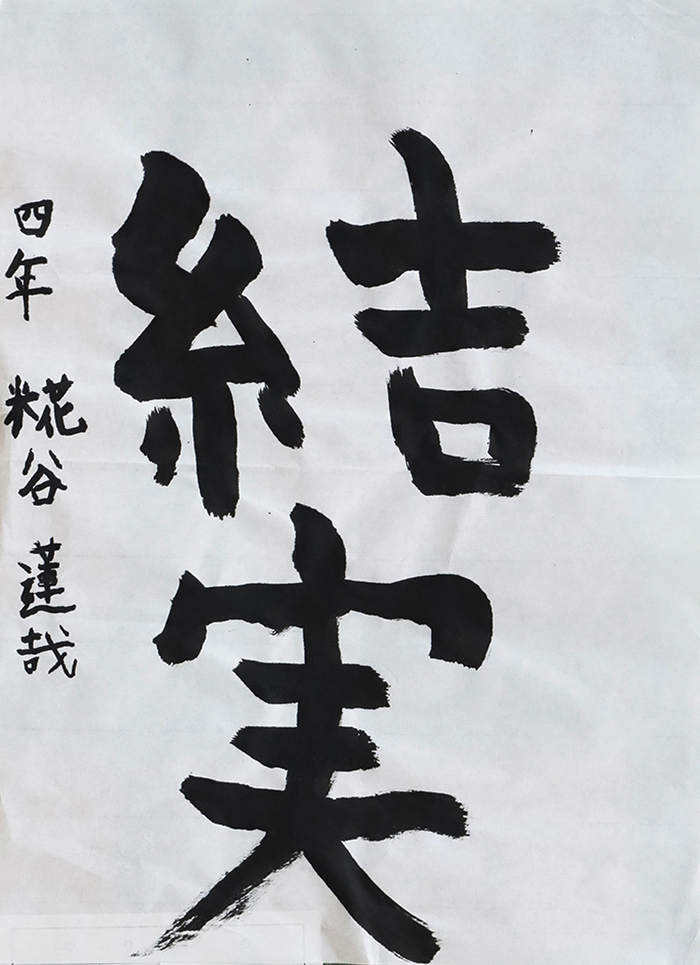 結実
四年 糀谷 蓮哉